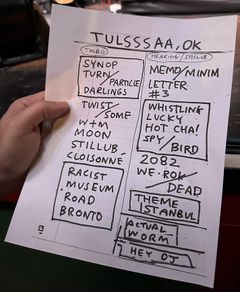 TULSSSAA, OK
SYNOP
TURN/PARTICLE
DARLINGS
TWIST/SOME
W+M
MOON
STILLUB
CLOISONNE
RACIST
MUSEUM
ROAD
BRONTO
HEARING/STILLUB
MEMO/MINIM
LETTER
#3
WHISTLING
LUCKY
HOT CHA!
SPY/BIRD
2082
WE·ROK/DEAD
THEME
ISTANBUL
ACTUAL
WORM
HEY DJ